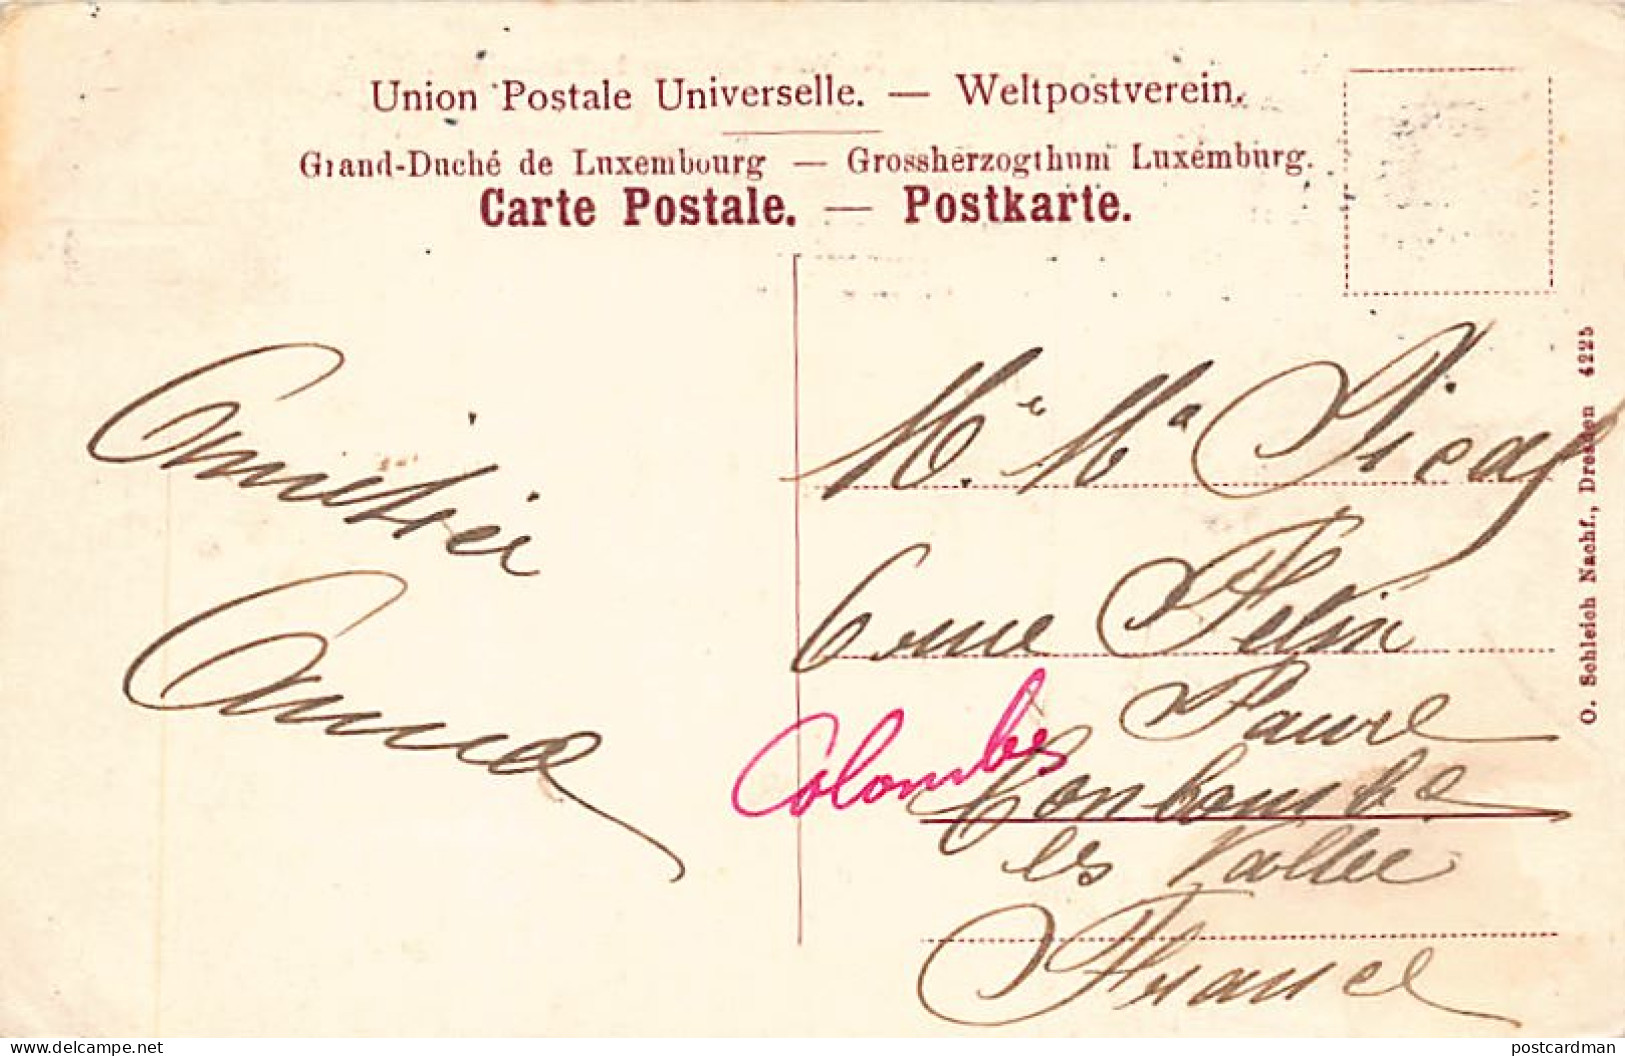 Union Postale Universelle. — Weltpostverein.
Grand-Duché de Luxembourg — Grossherzogthum Luxemburg.
Carte Postale. — Postkarte.
Amitiés
Anna
Me. Ma
6 rue Félix
Faure
Colombes
Conbombe
les Vallee
France
O. Schleich Nachf., Dresden 4225
www.delcampe.net
postcardman